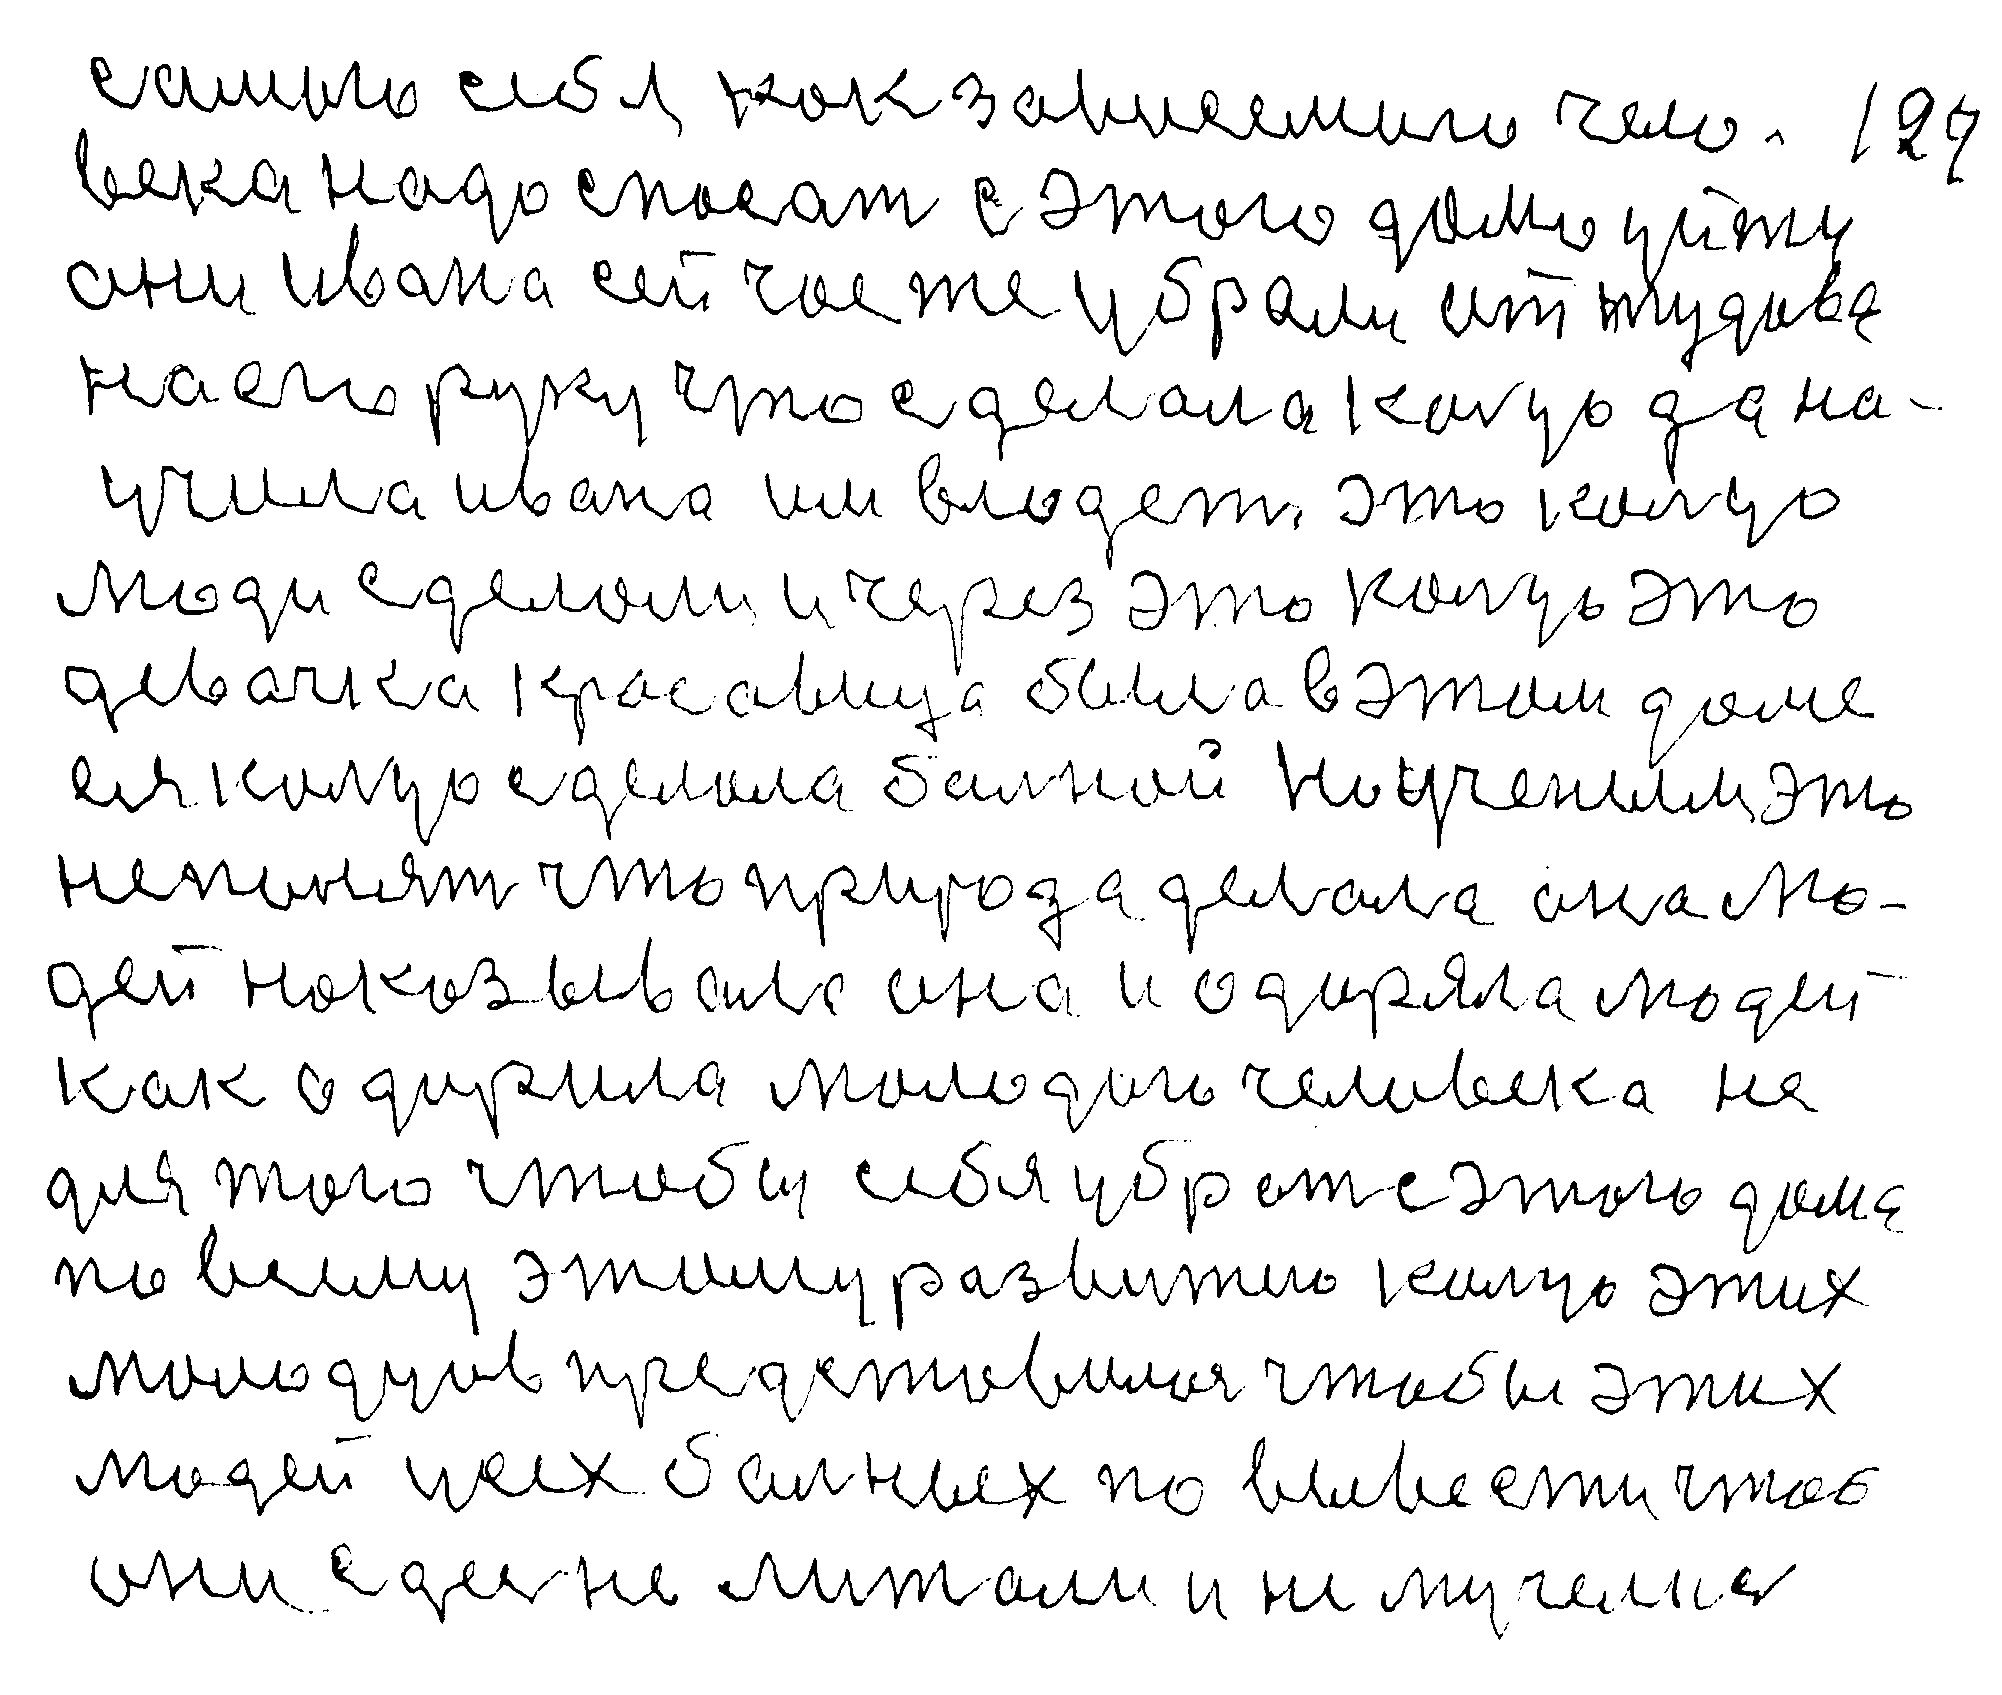 самого себя, как зависемого чело- 127
века надо спосат с этого дома уйти
они ивана сей час же убрали от тудова
на его руку что сделала кольцо да на-
учила ивана им владет, это кольцо
люди сделали и через это кольцо это
девачка красавица была в этом доме
ея кольцо сделала балной Но ученым это
непонят что природа делала она лю-
дей наказывала она и одиряла людей
как одирила молодого человека не
для того чтобы себя убрат с этого дома
по всему этому развитию кольцо этих
молодцов представилоя чтобы этих
людей усех балных по вывести чтоб
они сдесне литали и не мучелися